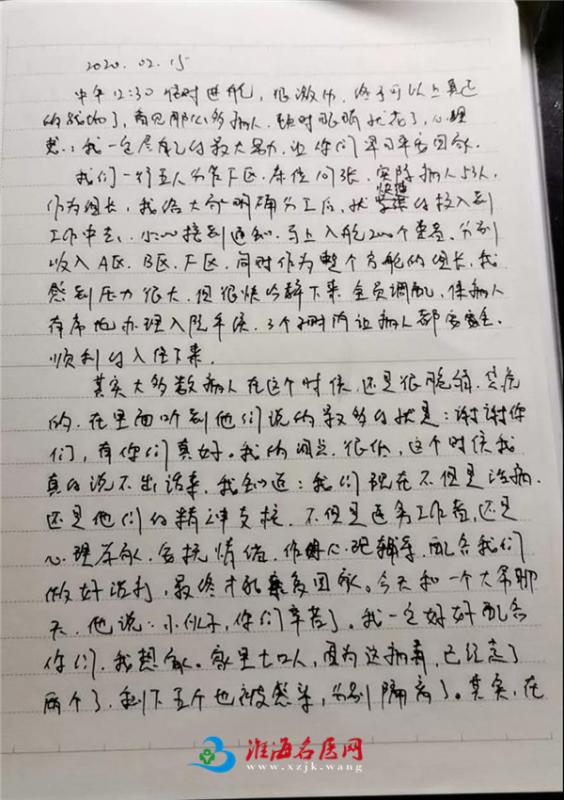 2020.02.15
中午12:30准时进舱,很激动,终于可以上真正
的战场了,看见那么多病人,顿时眼睛就花了,心理
想:我一定尽自己的最大努力,让你们早日平安回家。
我们一行五人分管F区,床位 张,实际病人53人,
作为组长,我给大家明确分工后,就快速的投入到
工作中去,接到通知,马上入舱200个患者,分别
收入A区、B区、F区,同时作为整个方舱的组长,我
感到压力很大,但很快冷静下来,全员调配,保病人
有序地办理入院手续,3个小时内让病人都安安全全、
顺利的入住下来。
其实大多数病人在这个时候,还是很脆弱、焦虑
的,在里面听到他们说的最多的就是:谢谢你
们,有你们真好。我的泪点很低,这个时候我
真的说不出话来,我知道:我们现在不但是治病,
还是他们的精神支柱,不但是医务工作者,还是
心理专家,安抚情绪,作 心理辅导,配合我们
做好治疗,最终才能康复回家。今天和一个大爷聊
天,他说:小伙子,你们辛苦了。我一定好好配合
你们,我想家。家里七口人,因为这病毒,已经走了
两个了,剩下五个也被感染,分别隔离了。其实,在
淮海名医网
www.xzjk.wang